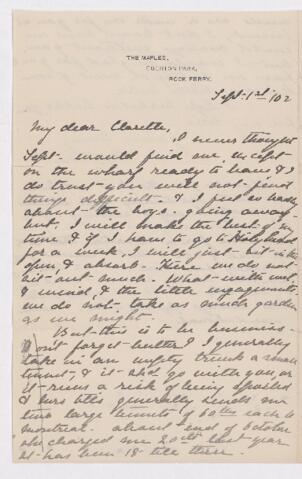 THE MAPLES,
PARK,
ROCK FERRY.
Sept. 1st /02
My dear Clarette,
I never thought
Sept. would find me, except
on the wharf ready to leave & I
do trust you will not find
things difficult. & I feel so badly
about the boys going away
but, I will make the best of my
time & if I have to go to Holyhead
for a week, I will just sit in the
open & absorb. Here we do not
sit out much. What with wet,
& wind & the little engagements
we do not take as much garden
as we might.
But this is to be business
Don't forget butter! I generally
take in an empty trunk a small
tinnet, & it shd go with you, or
it runs a risk of being spoiled
& generally sends me
two large tinnets of 60 lbs each to
Montreal. about end of October
she charged me 20cts last year
It has been 18 till then.